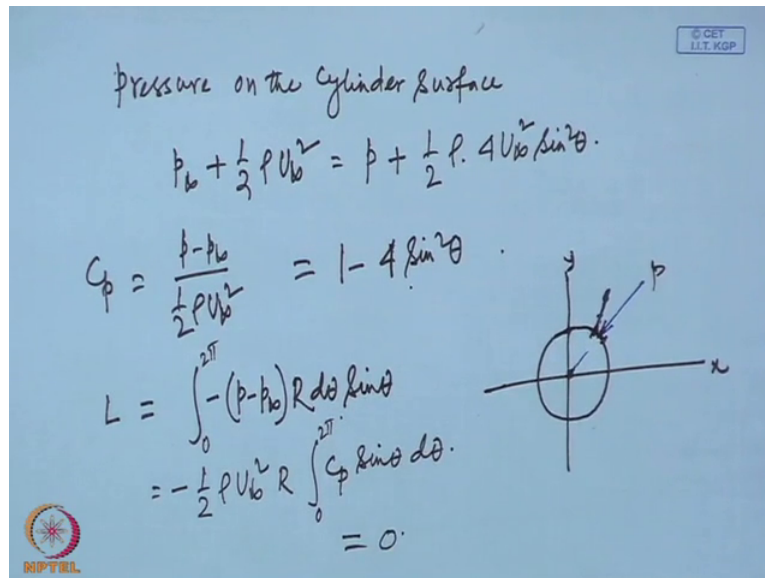 © CET
I.I.T. KGP
Pressure on the Cylinder Surface
p∞ + 1/2 ρU∞² = p + 1/2 ρ. 4U∞² Sin²θ.
Cp = (p-p∞)/(1/2 ρU∞²) = 1 - 4 Sin²θ .
y
p
x
L = ∫₀^2π -(p-p∞) R dθ Sinθ
= - 1/2 ρU∞² R ∫₀^2π Cp Sinθ dθ.
= 0.
NPTEL